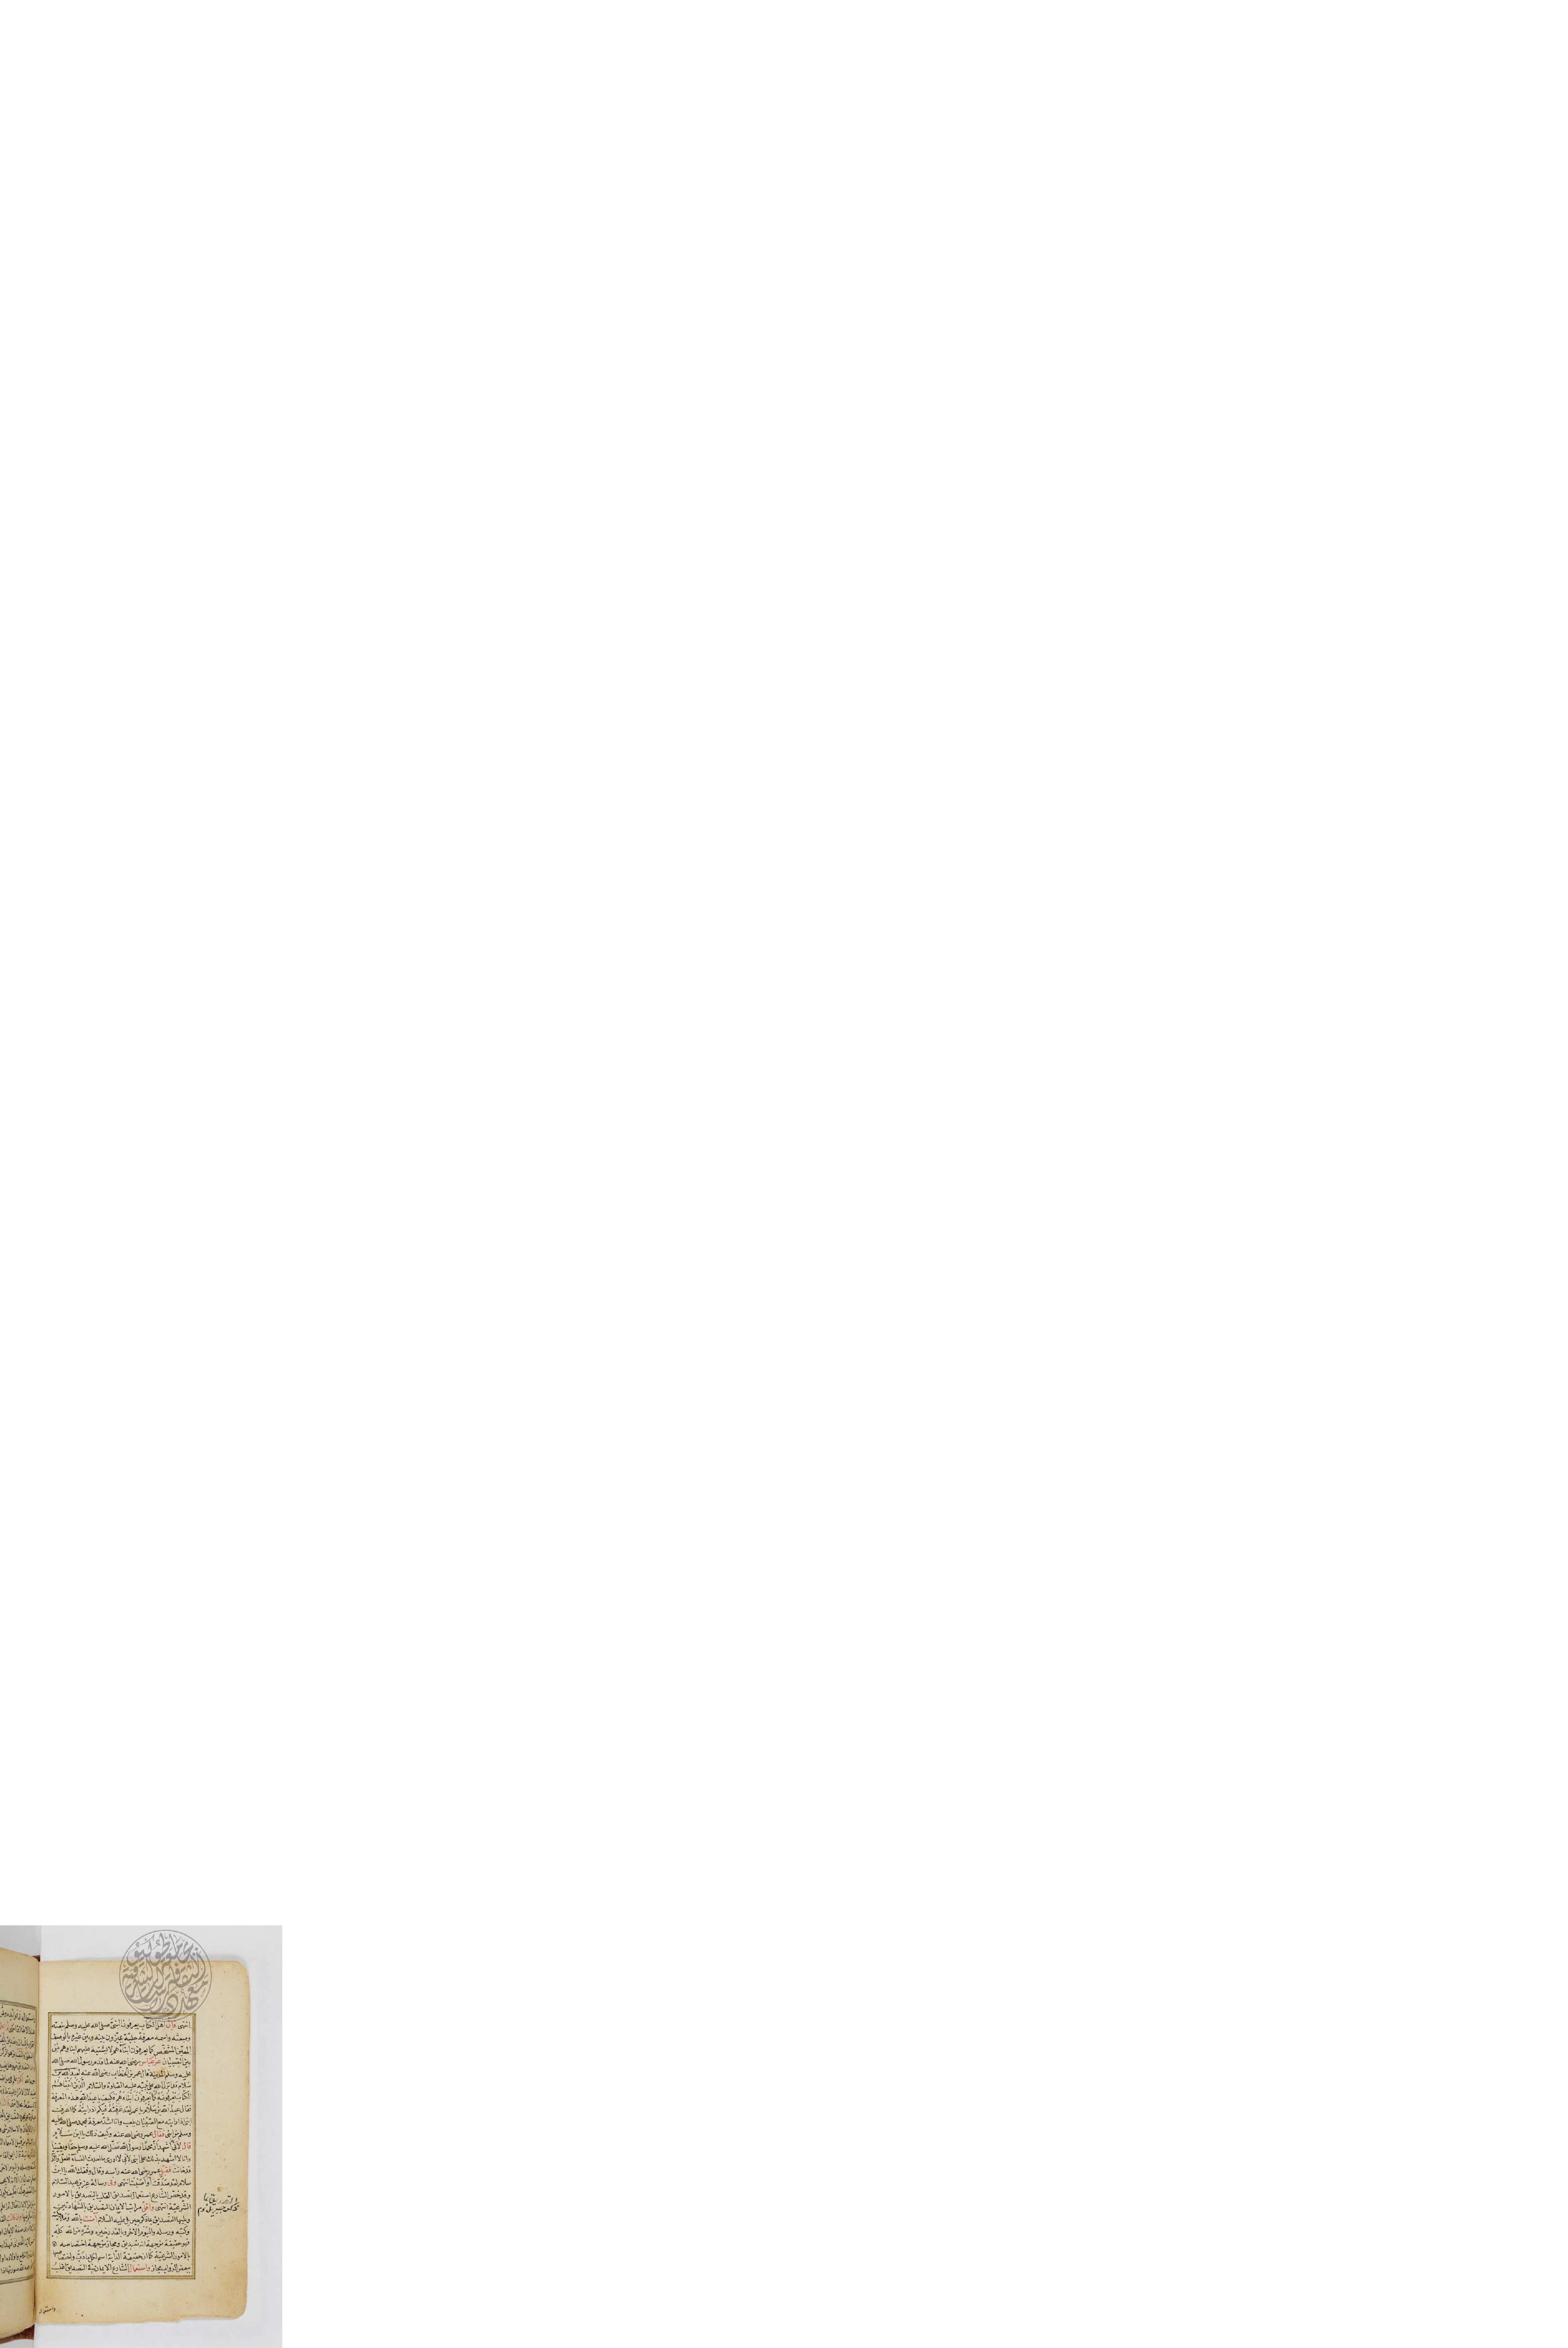 انتهى فان اهل الكتاب يعرفون النبي صلى الله عليه وسلم بنعته
ومبعثه واسمه معرفة جلية يميزون بينه وبين غيره بالوصف
المعين المشخص كما يعرفون ابناءهم لا تشتبه عليهم ابناؤهم من
بين الصبيان عن ابن عباس رضى الله عنه لما قدم رسول الله صلى الله
عليه وسلم المدينة قال عمر بن الخطاب رضى الله عنه لعبد الله بن
سلام وقد انزل الله على نبيه عليه الصلوة والسلام الذين اتيناهم
الكتاب يعرفونه كما يعرفون ابناءهم فكيف يا عبد الله هذه المعرفة
فقال عبد الله بن سلام يا عمر لقد عرفته فيكم اذ رايته كما اعرف
ابنى اذا رايته مع الصبيان يلعب وانا اشد معرفة بمحمد صلى الله عليه
وسلم من ابنى فقال عمر رضى الله عنه وكيف ذلك يا ابن سلام
قال لأنى اشهد ان محمدا رسول الله صلى الله عليه وسلم حقا ويقينا
وانا لا اشهد بذلك على ابنى لأنى لا ادرى ما احدثت النساء فلعل والدته
قد خانت فقبل عمر رضى الله عنه راسه وقال وفقك الله يا ابن
سلام لقد صدقت او اصبت انتهى وفى رسالة عز بن عبد السلام
وقد خص الشارع استعمال تصديق القلب بالتصديق بالامور
الشرعية انتهى واعلى مراتب الايمان التصديق بالشهادتين
ويليها التصديق بما ذكر جبريل عليه السلام آمنت بالله وملائكته
وكتبه ورسله واليوم الآخر وبالقدر خيره وشره من الله كله
فهو حقيقة من جهة انه تصديق ومجاز من جهة اختصاصه
بالامور الشرعية كما ان حقيقة الدابة اسم لكل ما دب واختصاصها
ببعض الدواب مجاز واستعمال الشارع الايمان فى التصديق اغلب
واستعمال